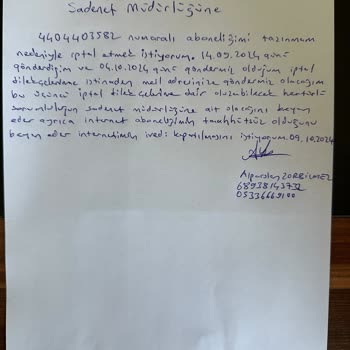 Sadenet Müdürlüğüne
4404403582 numaralı aboneliğimi taşınmam
nedeniyle iptal etmek istiyorum. 14.09.2024 günü
gönderdiğim ve 04.10.2024 günü göndermiş olduğum iptal
dilekçelerime istinaden mail adresinize göndermiş olacağım
bu üçüncü iptal dilekçelerime dair oluşabilecek her türlü
sorumluluğun sadenet müdürlüğüne ait olacağını beyan
eder ayrıca internet aboneliğimin taahhütsüz olduğunu
beyan eder internetimin ivedi kapatılmasını istiyorum. 09.10.2024
Alparslan ZORBİLMEZ
68938143732
05336669100